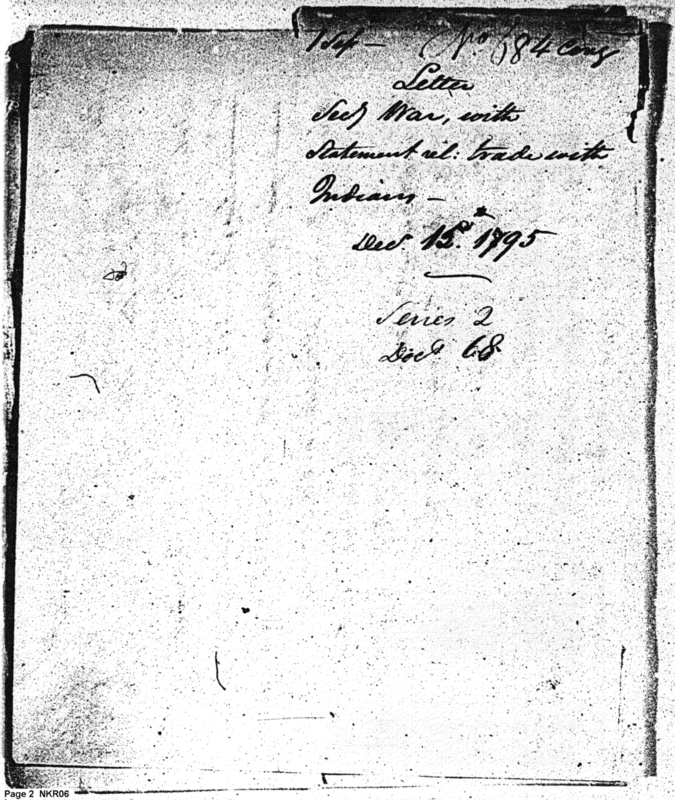 1 Sess — No. 68 4 Cong
Letter
Secy War, with
Statement rel: trade with
Indians —
Decr. 15. 1795
Series 2
Doct 68
Page 2 NKR06